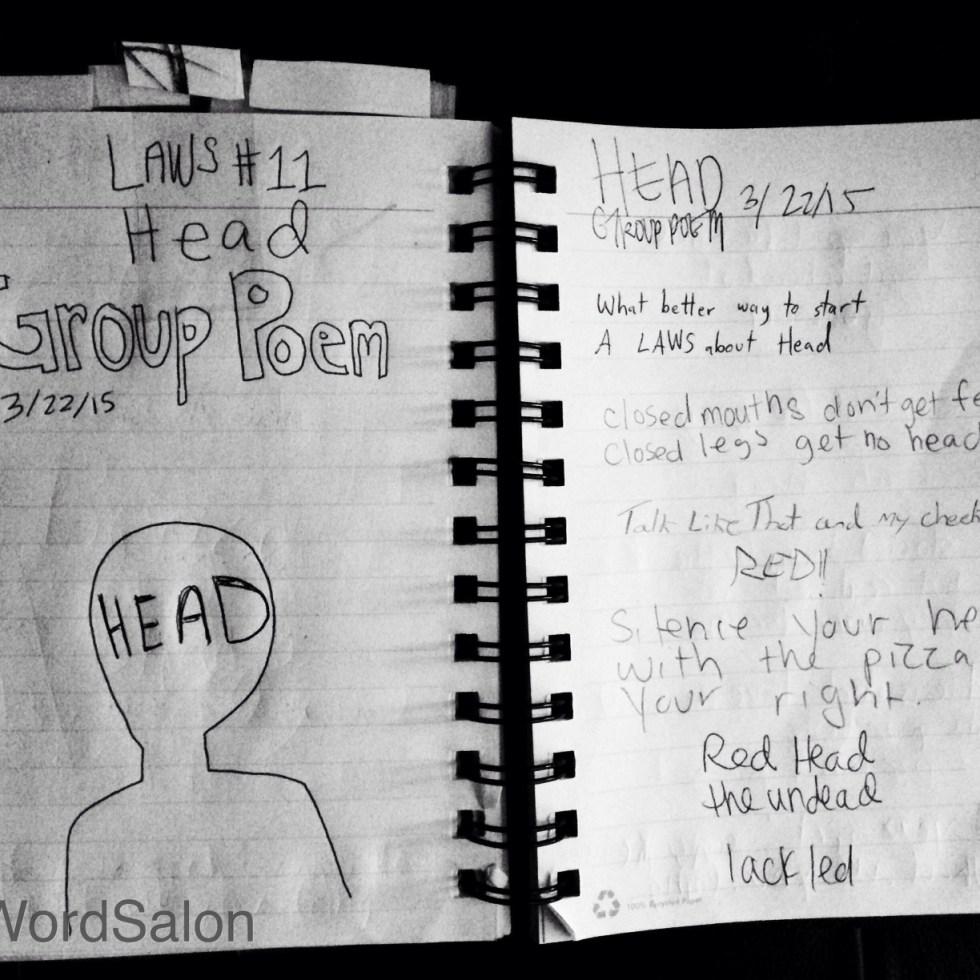 LAWS #11
Head
Group Poem
3/22/15
HEAD
WordSalon
HEAD 3/22/15
Group poem
What better way to start
A LAWS about Head
closed mouths don't get fe
closed legs get no head
Talk Like That and my cheek
RED!!
Silence your he
with the pizza
Your right.
Red Head
the undead
lack led
100% Recycled Paper